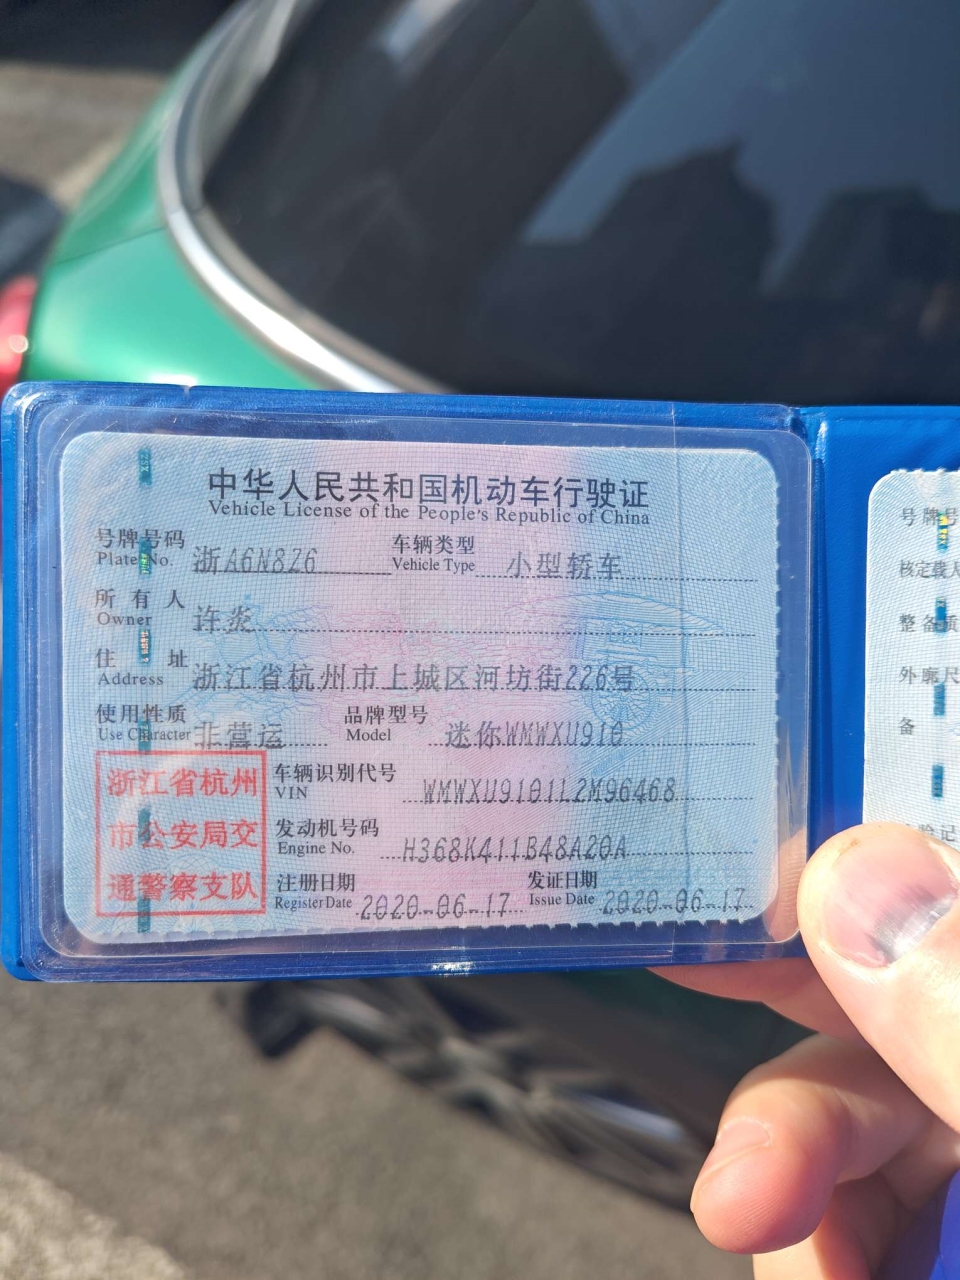 中华人民共和国机动车行驶证
Vehicle License of the People's Republic of China
号牌号码 浙A6N8Z6 车辆类型 小型轿车
Plate No. Vehicle Type
所有人 许炎
Owner
住址 浙江省杭州市上城区河坊街226号
Address
使用性质 非营运 品牌型号 迷你WMWXU910
Use Character Model
浙江省杭州
市公安局交
通警察支队
车辆识别代号 WMWXU9101L2M96468
VIN
发动机号码 H368K411B48A20A
Engine No.
注册日期 2020-06-17 发证日期 2020-06-17
Register Date Issue Date
号牌号
核定载人
整备质
外廓尺
备